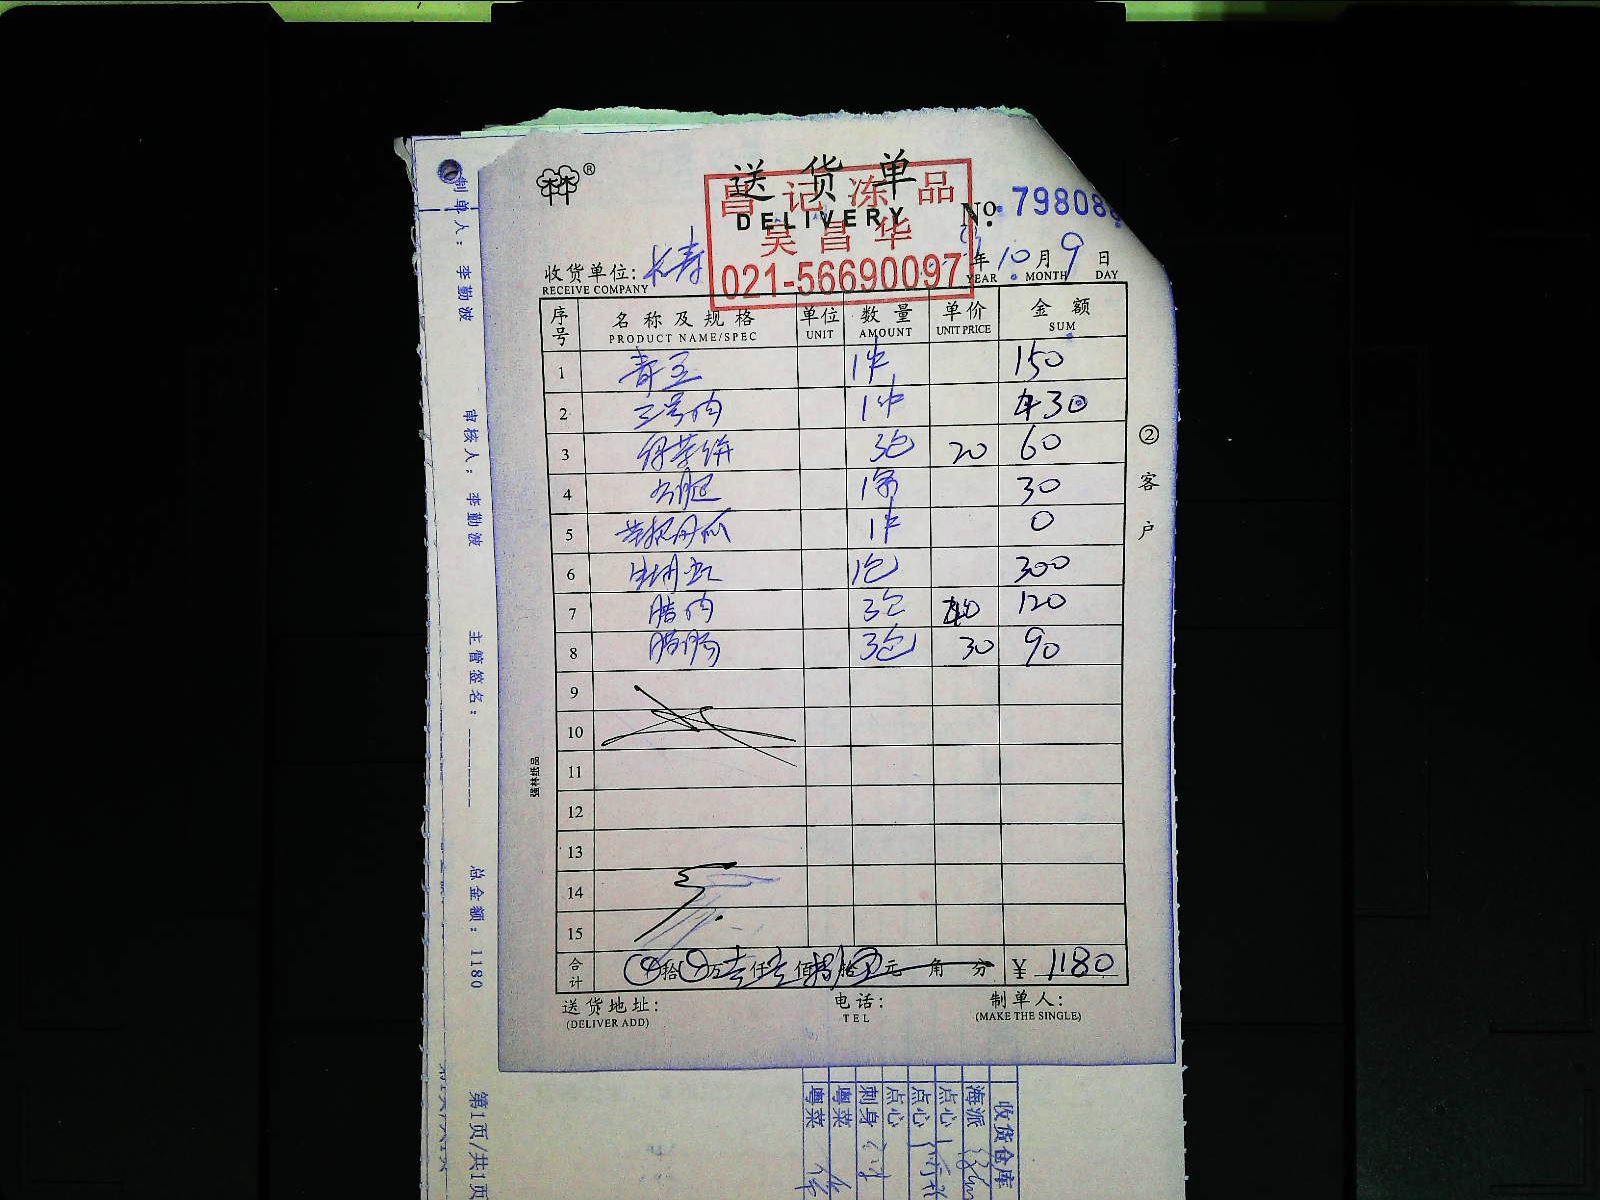 送货单
DELIVERY
昌记冻品
吴昌华
021-56690097
No. 79808
收货单位: 长寿
RECEIVE COMPANY
年 10 月 9 日
YEAR MONTH DAY
序号 名称及规格 单位 数量 单价 金额
PRODUCT NAME/SPEC UNIT AMOUNT UNIT PRICE SUM
1 青豆 1件 150
2 三号肉 1件 430
3 3包 20 60
4 1条 30
5 1件 0
6 1包 300
7 腊肉 3包 40 120
8 腊肠 3包 30 90
9
10
11
12
13
14
15
合计 拾 万 壹仟 壹佰 捌拾 元 角 分 ¥ 1180
送货地址: 电话: 制单人:
(DELIVER ADD) TEL (MAKE THE SINGLE)
②客户
强林纸品
制单人: 李勤波 审核人: 李勤波 主管签名: 总金额: 1180 第1页/共1页
收货仓库
海派
点心
点心
点心
刺身
粤菜
粤菜